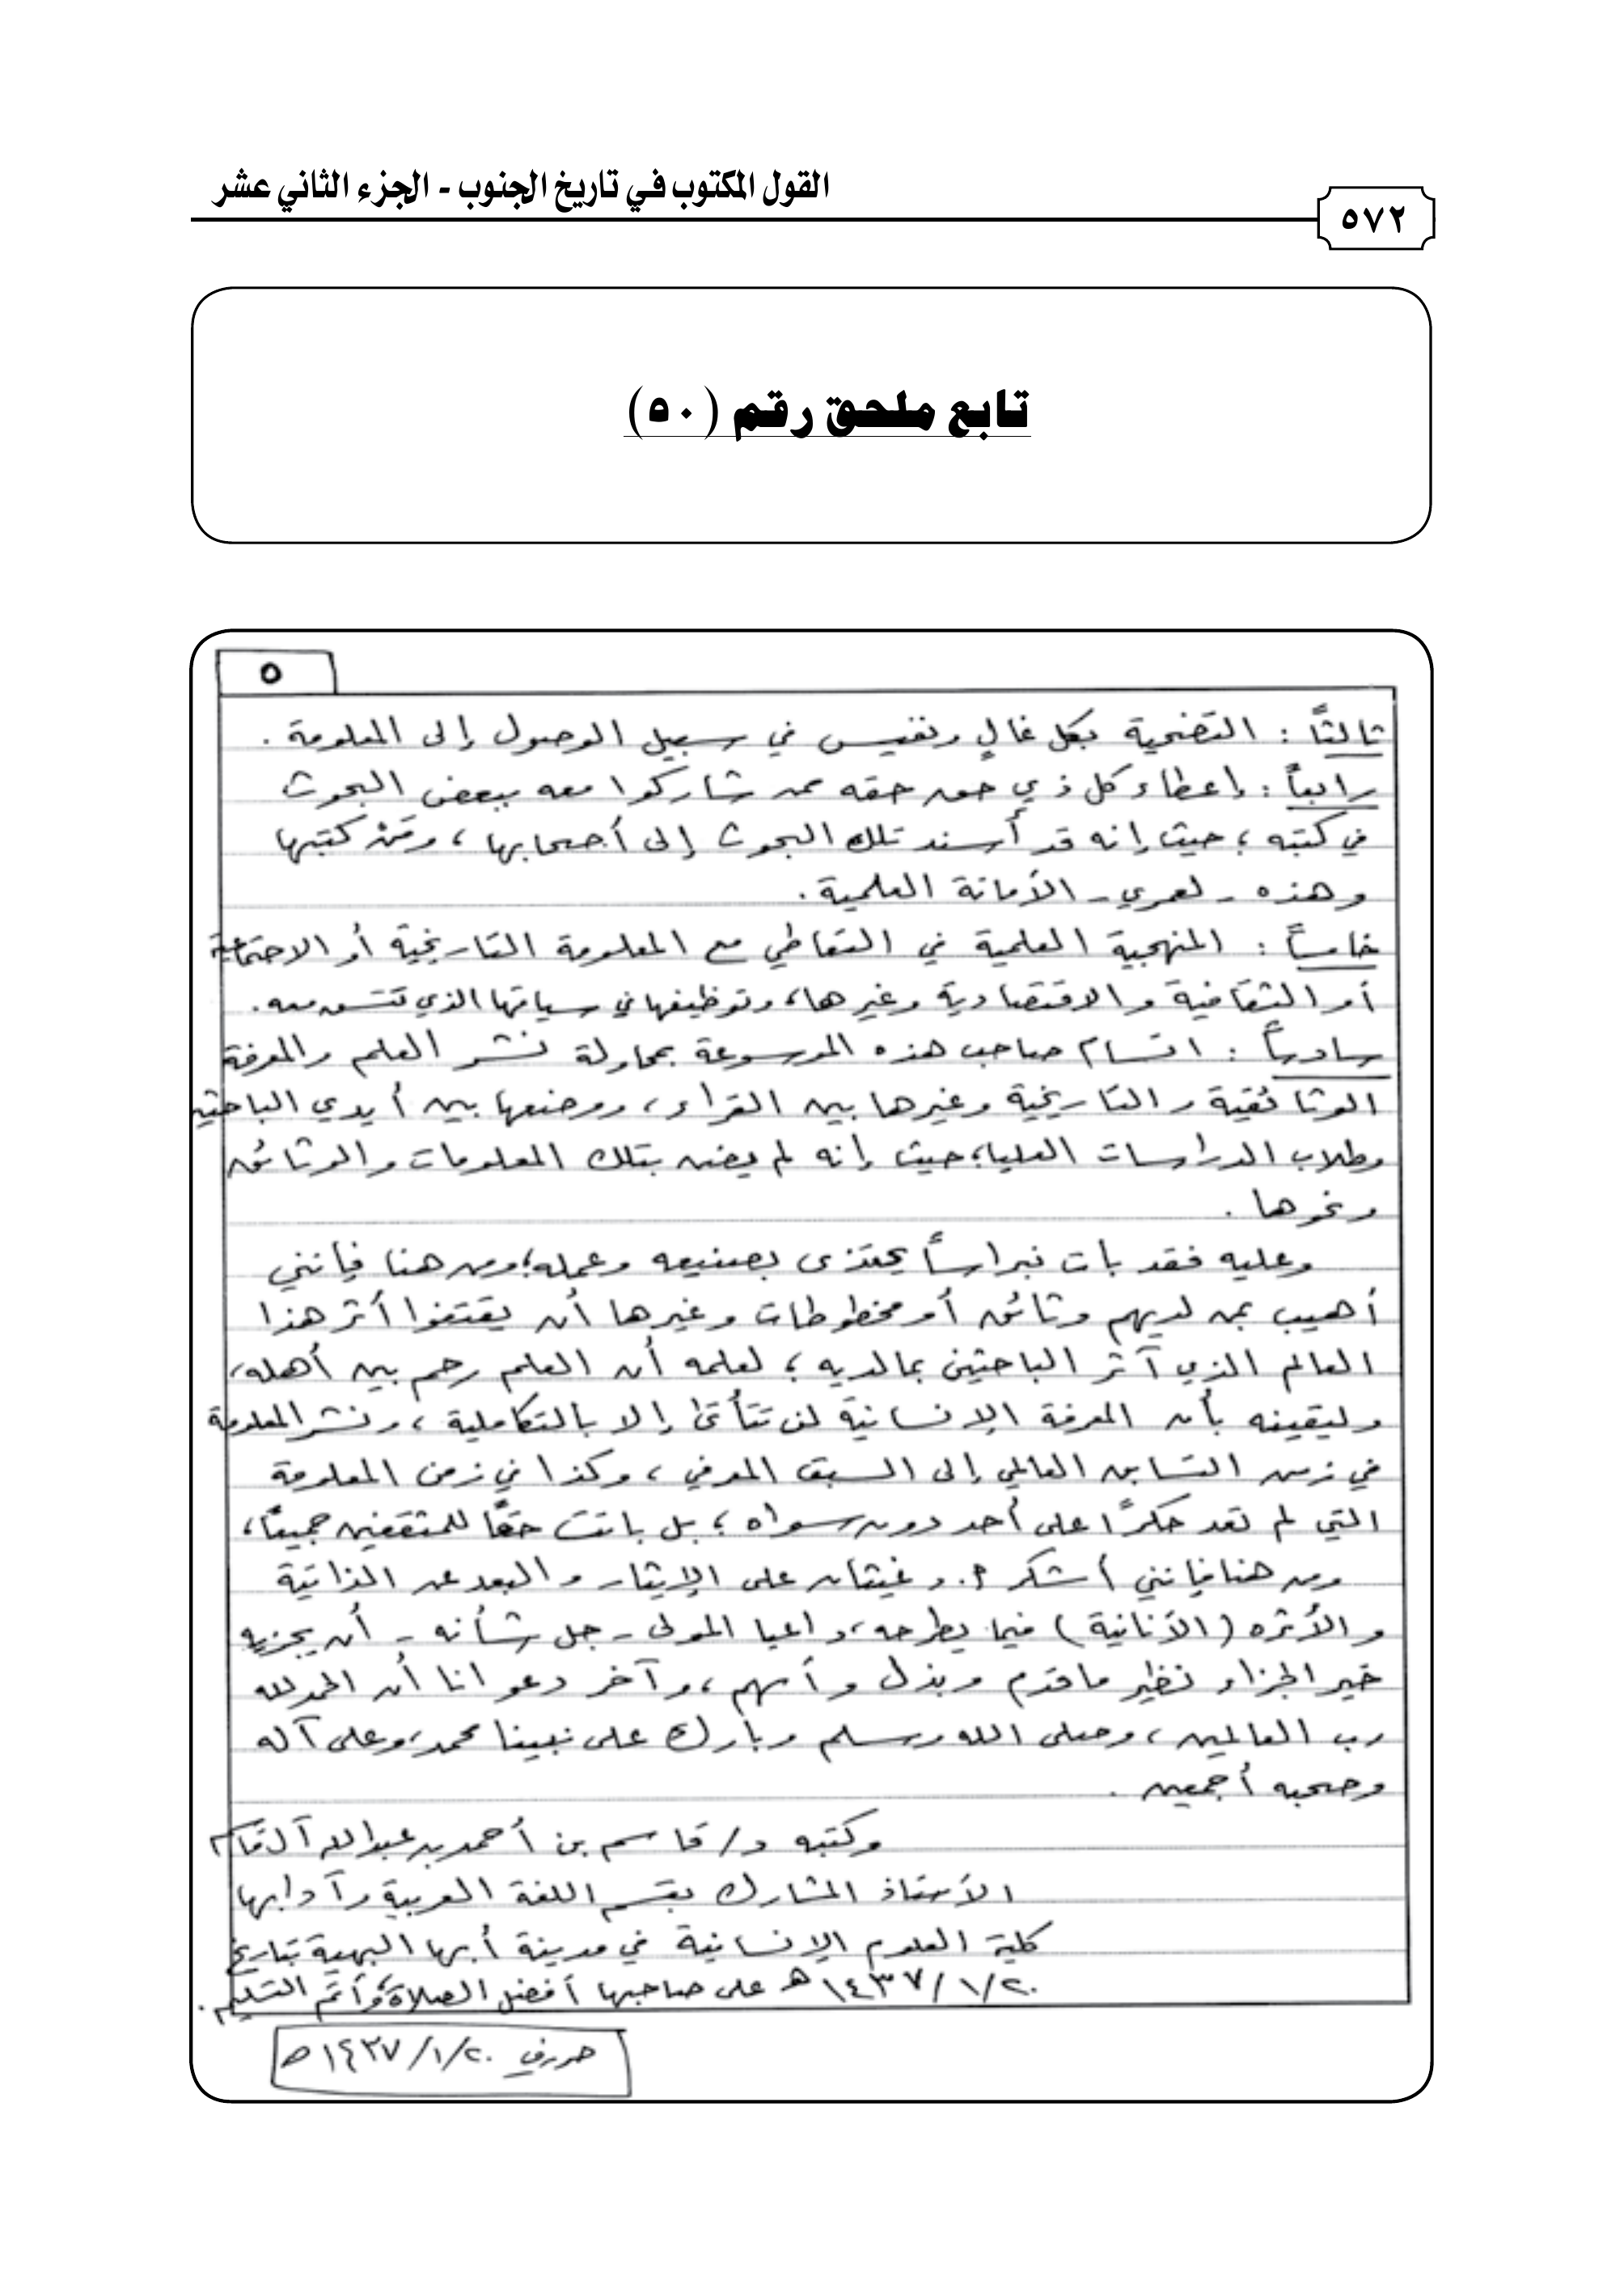 القول المكتوب في تاريخ الجنوب - الجزء الثاني عشر
٥٧٢
تابع ملحق رقم (٥٠)
٥
ثالثاً : التضحية بكل غالٍ ونفيس في سبيل الوصول إلى المعلومة .
رابعاً : إعطاء كل ذي حق حقه ممن شاركوا معه ببعض البحوث
في كتبه ؛ حيث إنه قد أسند تلك البحوث إلى أصحابها ، ومَنْ كتبها
وهذه - لعمري - الأمانة العلمية .
خامساً : المنهجية العلمية في التعاطي مع المعلومة التاريخية أو الاجتماعية
أو الثقافية والاقتصادية وغيرها، وتوظيفها في سياقها الذي تتسق معه .
سادساً : اتسام صاحب هذه الموسوعة بمحاولة نشر العلم والمعرفة
الوثائقية والتاريخية وغيرها بين القراء ، ووضعها بين أيدي الباحثين
وطلاب الدراسات العليا ؛ حيث إنه لم يضن بتلك المعلومات والوثائق
ونحوها .
وعليه فقد بات نبراساً يحتذى بصنيعه وعمله ؛ ومن هنا فإنني
أهيب بمن لديهم وثائق أو مخطوطات وغيرها أن يقتفوا أثر هذا
العالم الذي آثر الباحثين بما لديه ؛ لعلمه أن العلم رحم بين أهله ،
وليقينه بأن المعرفة الإنسانية لن تتأتى إلا بالتكاملية ، ونشر المعلومة
في زمن التسابق العالمي إلى السبق المعرفي ، وكذا في زمن المعلومة
التي لم تعد حكرًا على أحد دون سواه ؛ بل باتت حقًا للمثقفين جميعاً ،
ومن هنا فإنني أشكر أ. د غيثان على الإيثار والبعد عن الذاتية
والأثره (الأنانية) فيما يطرحه ، داعيا المولى - جل شأنه - أن يجزيه
خير الجزاء نظير ما قدم وبذل وأسهم ، وآخر دعوانا أن الحمد لله
رب العالمين ، وصلى الله وسلم وبارك على نبينا محمد ، وعلى آله
وصحبه أجمعين .
وكتبه د/ قاسم بن أحمد بن عبدالله آل قاسم
الأستاذ المشارك بقسم اللغة العربية وآدابها
كلية العلوم الإنسانية في مدينة أبها البهية بتاريخ
١٤٣٧/١/٢٠ هـ على صاحبها أفضل الصلاة وأتم التسليم .
١٤٣٧/١/٢٠ هـ